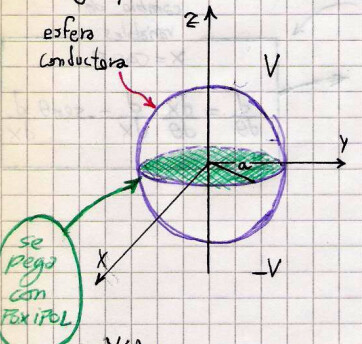 z
esfera
conductora
V
y
a
x
-V
se
pega
con
POXIPOL